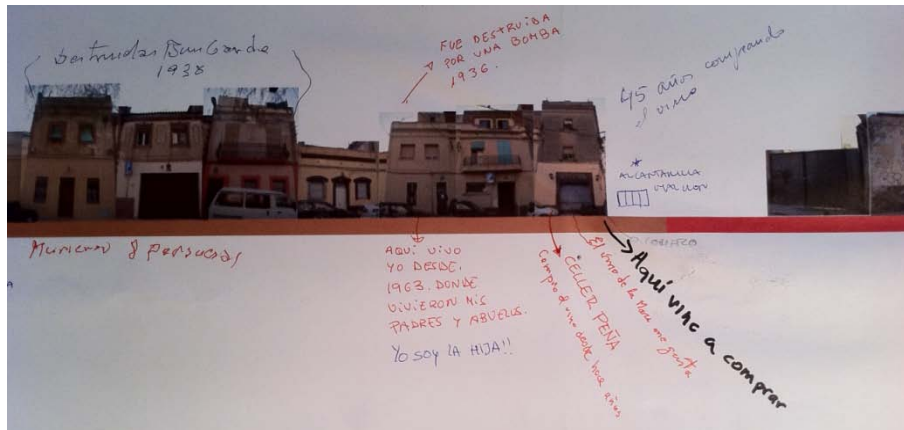 1938
FUE DESTRUIDA
POR UNA BOMBA
1936.
45 años comprando
el vino
*
ALCANTARILLA
Murieron 8 personas
AQUÍ VIVO
YO DESDE.
1963. DONDE
VIVIERON MIS
PADRES Y ABUELOS.
Yo soy LA HIJA!!
CELLER PEÑA
Compro el vino desde hace años
El vino de la Mara me gusta
Aquí vinc a comprar